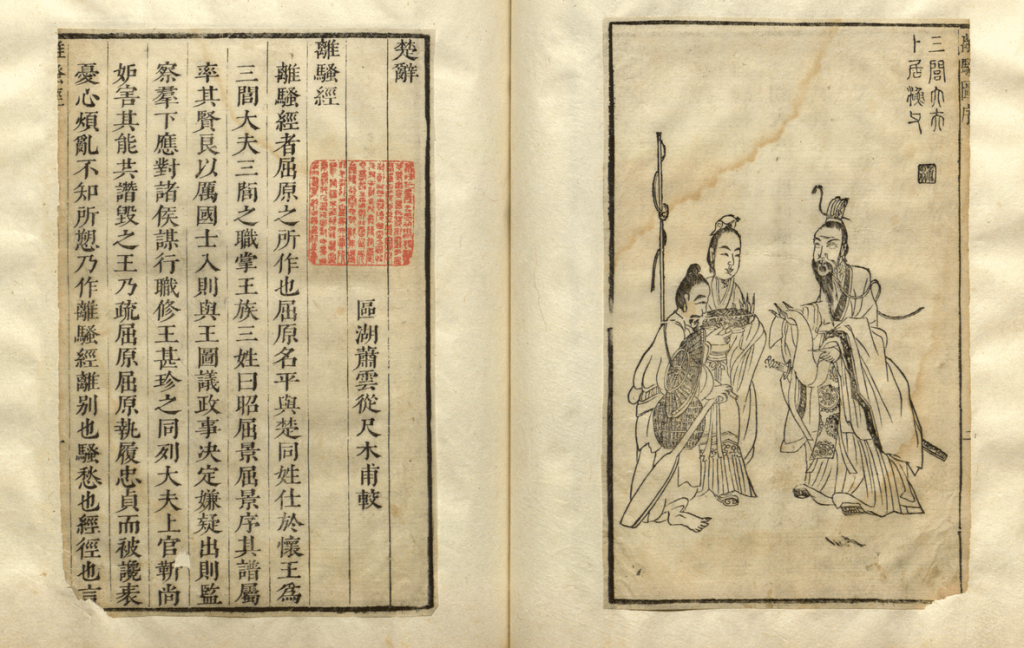 三閭大夫
卜居漁父
楚辭
離騷經
區湖蕭雲從尺木甫較
離騷經者屈原之所作也屈原名平與楚同姓仕於懷王爲
三閭大夫三閭之職掌王族三姓曰昭屈景屈景序其譜屬
率其賢良以厲國士入則與王圖議政事決定嫌疑出則監
察羣下應對諸侯謀行職修王甚珍之同列大夫上官靳尚
妒害其能共譖毀之王乃疏屈原屈原執履忠貞而被讒衺
憂心煩亂不知所愬乃作離騷經離别也騷愁也經徑也言